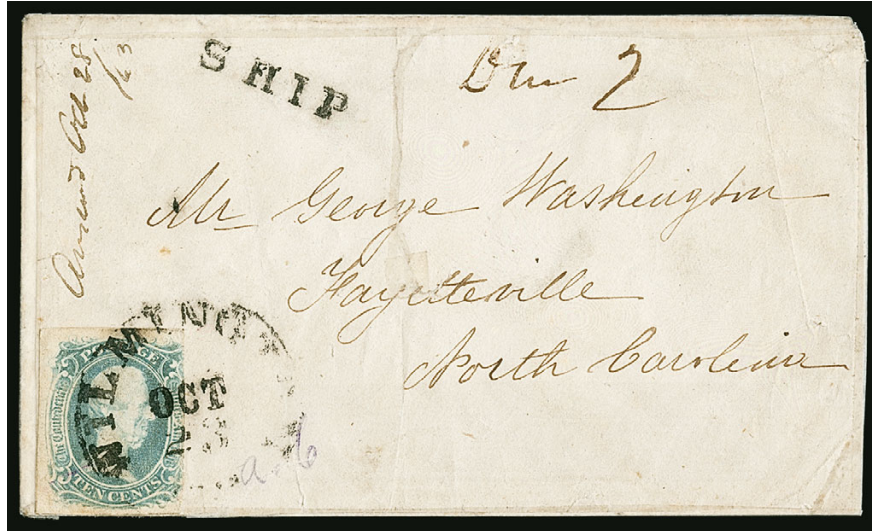 SHIP
Due 2
Oct 28
/63
Mr George Washington
Fayetteville
North Carolina
WILMINGT
OCT
POSTAGE
The Confederate
TEN CENTS
a-6